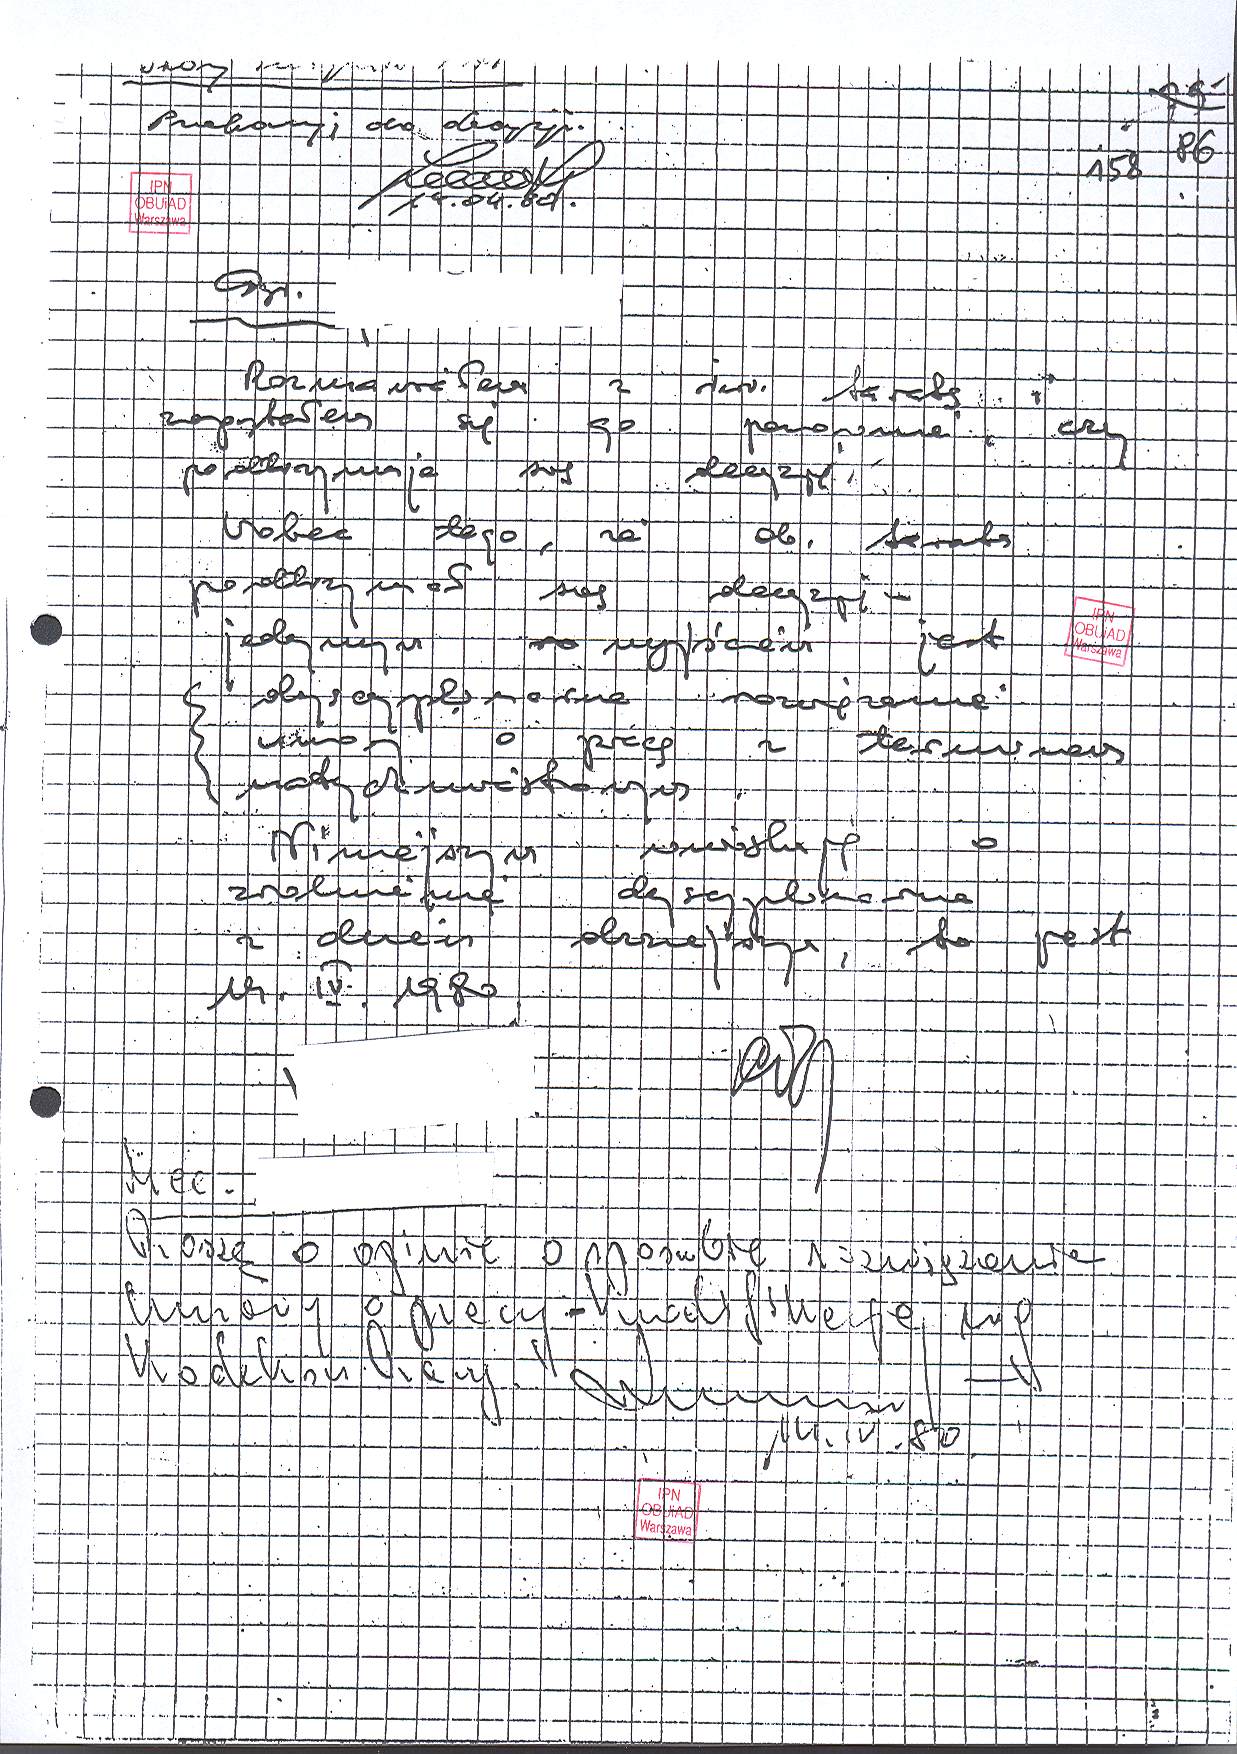 Przekazuję do decyzji.
14.04.80.
86
158
IPN
OBUiAD
Warszawa
Rozmawiałem z inż. i
zapytałem się go ponownie, czy
podtrzymuje swą decyzję.
Wobec tego, że ob.
podtrzymał swą decyzję -
jedynym wyjściem jest
dyscyplinarne rozwiązanie
umowy o pracę z terminem
natychmiastowym.
Niniejszym wnioskuję o
zwolnienie dyscyplinarne
z dniem dzisiejszym, to jest
14. IV. 1980.
IPN
OBUiAD
Warszawa
Mec.
Proszę o opinię o sposobie rozwiązania
umowy o pracy - kwalifikację wg
Kodeksu Pracy.
14.IV.80
IPN
OBUiAD
Warszawa